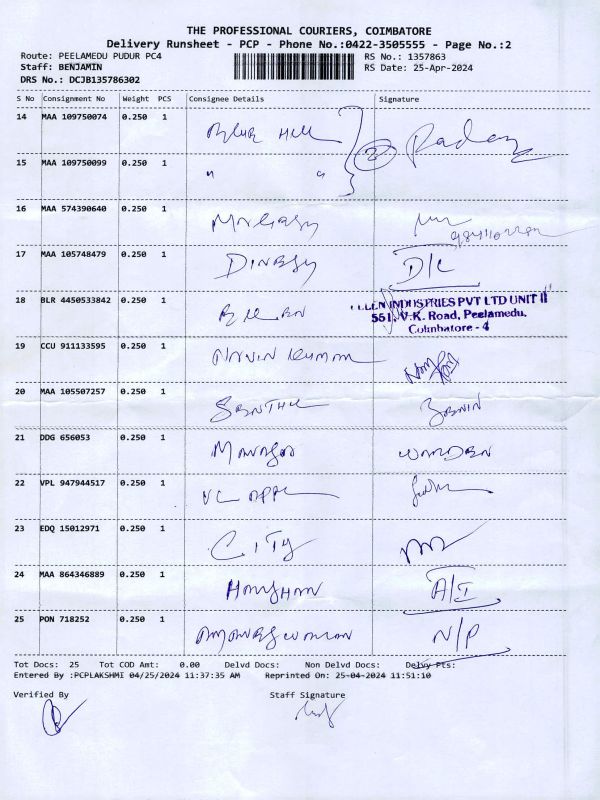 THE PROFESSIONAL COURIERS, COIMBATORE
Delivery Runsheet - PCP - Phone No.:0422-3505555 - Page No.:2
Route: PEELAMEDU PUDUR PC4 RS No.: 1357863
Staff: BENJAMIN RS Date: 25-Apr-2024
DRS No.: DCJB135786302
S No Consignment No Weight PCS Consignee Details Signature
14 MAA 109750074 0.250 1 Blue Hill 2
15 MAA 109750099 0.250 1 " "
16 MAA 574390640 0.250 1
17 MAA 105748479 0.250 1 DINESH D/L
18 BLR 4450533842 0.250 1 INDUSTRIES PVT LTD UNIT II
551, V.K. Road, Peelamedu,
Coimbatore - 4
19 CCU 911133595 0.250 1 ARVIN Kumar
20 MAA 105507257 0.250 1 SENTHIL
21 DDG 656053 0.250 1 WARDEN
22 VPL 947944517 0.250 1
23 EDQ 15012971 0.250 1 CITY
24 MAA 864346889 0.250 1 A/I
25 PON 718252 0.250 1 N/P
Tot Docs: 25 Tot COD Amt: 0.00 Delvd Docs: Non Delvd Docs: Delvy Pts:
Entered By :PCPLAKSHMI 04/25/2024 11:37:35 AM Reprinted On: 25-04-2024 11:51:10
Verified By Staff Signature